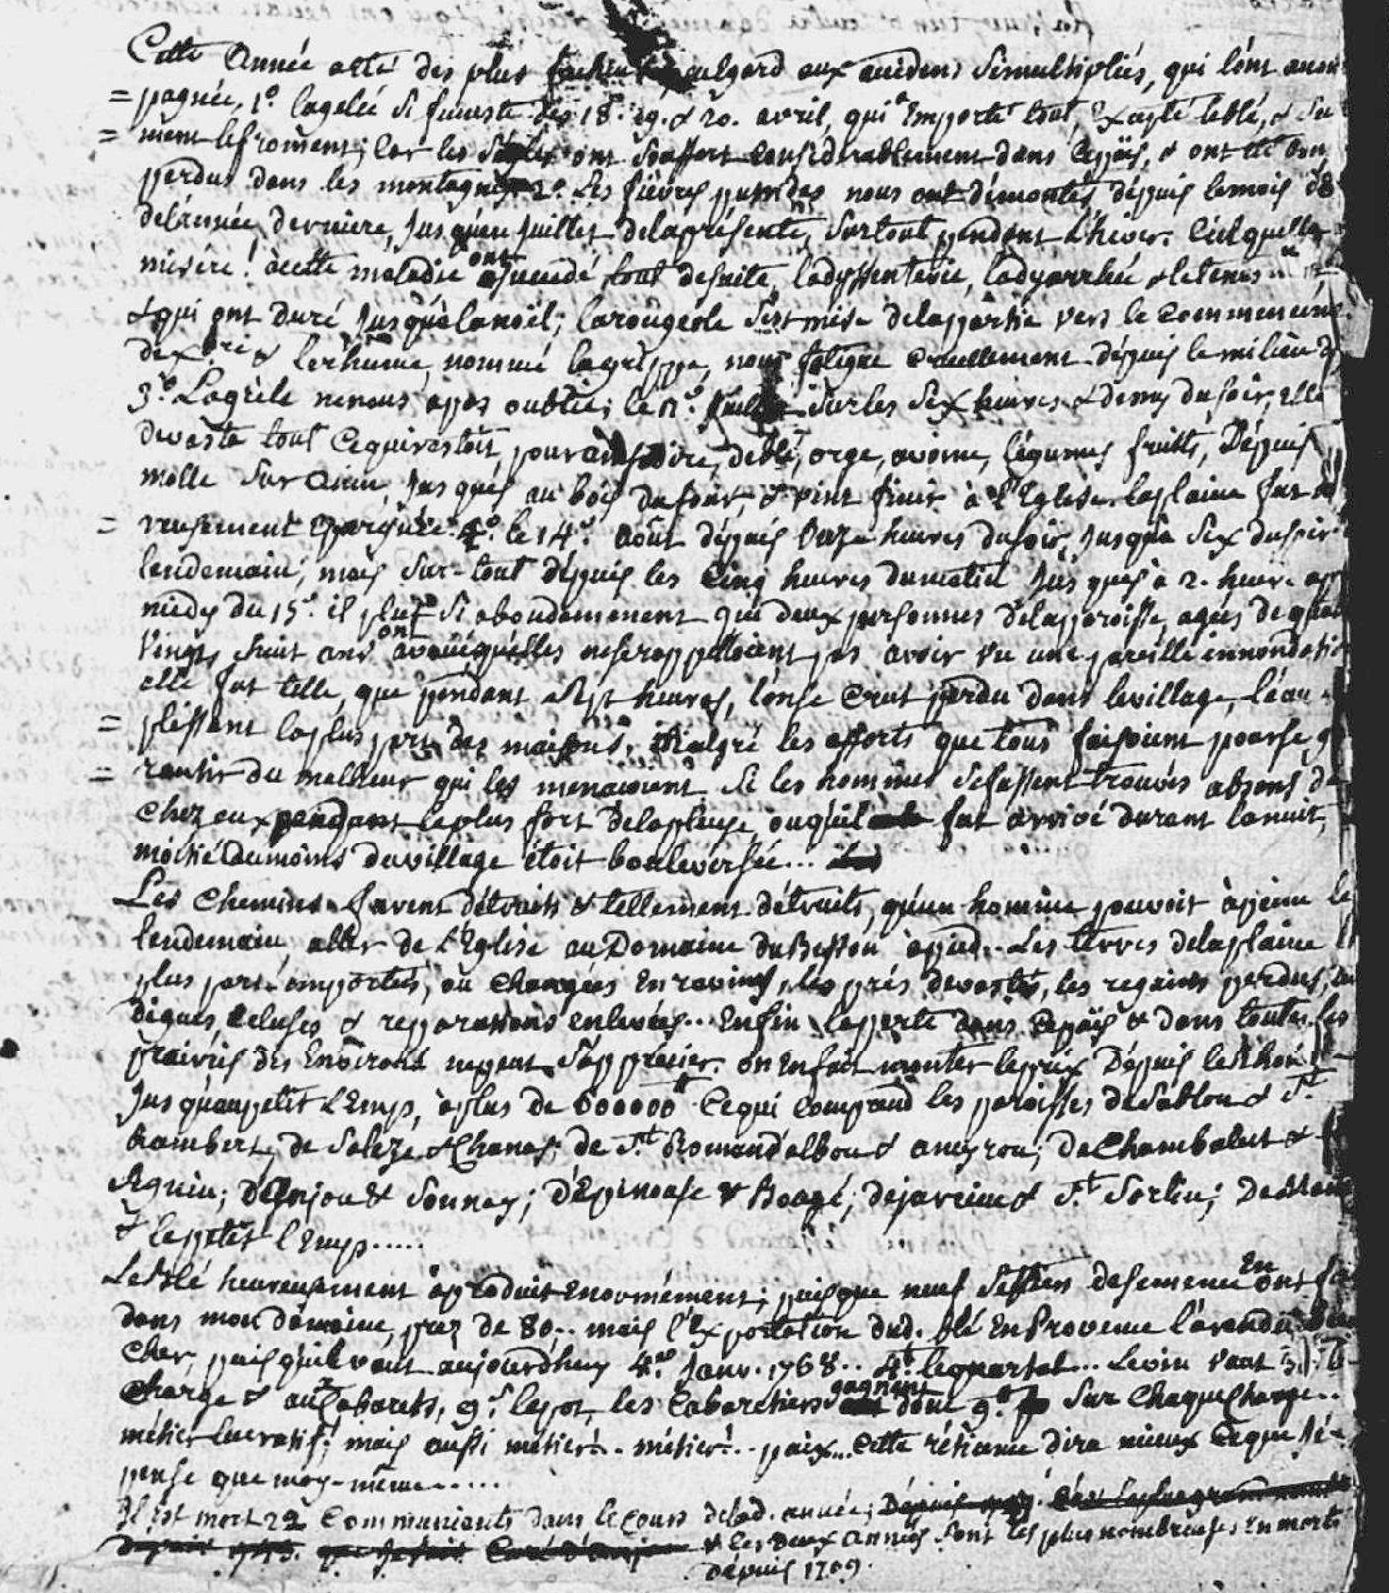 Cette Année a été des plus égard aux accidens si multipliés, qui l'ont accom
= pagnée, 1.° la gelée si funeste des 18. 19. & 20. avril, qui a emporté tout, Excepté le blé, & Su
= ment le froment; Car lesSégles ont souffert Considérablement dans Ce païs, & ont été
perdus dans les montagnes 2.° Les fièvres putrides nous ont démontés dépuis le mois de
de l'année derniere, Jusqu'en Juillet de la présente, Surtout pendant l'hiver. Ciel quelle
misère! à cette maladie ont succedé tout de suite, la dyssenterie, la dyarrhée & le tenes
& qui ont duré Jusqu'à la noël; la rougeole s'est mise de la partie vers le Commencem
de X.bre & le rhume, nommé la grippe, nous fatigue Cruellement dépuis le milieu d
3.° La grêle ne nous a pas oublié; le Sur les Six heures & demy du soir, Elle
devasta tout Ce qui restoit, pour ainsi dire, de blé, orge, avoine, légumes fruits, Dépuis
molle Jusques au bois du four, & vint finir à l'Eglise. La plaine fut
= reusement épargnée. 4.° le 14.e Août dépuis onze heures du soir, Jusqu'à Six du soir
lendemain; mais Sur-tout dépuis les Cinq heures du matin Jusques à 2. heure ap
midy du 15.e il plut si abondemment que deux personnes de la paroisse, agées de quat
vingts huit ans ont avoué qu'elles ne se rappelloient pas avoir vu une pareille innondatio
elle fut telle, que pendant sept heures, l'on se Crut perdu dans le village, l'eau
= plissant la plus part des maisons. Malgré les efforts que tous faisoient pour se g
= rantir du malheur qui les menacoient Si les hommes se fussent trouvés absens de
Chez eux pendant le plus fort de la pluye, ou qu'il fut arrivé durant la nuit,
moitié du moins du village étoit bouleversée...
Les Chemins furent détruits & tellement détruits, qu'un homme pouvoit à peine le
lendemain, aller de l'Eglise au Domaine du Besson à pied. Les terres de la plaine
plus part emportés, ou Chargées En ravins, les prés devastés, les regains perdus,
digues, Ecluses & repparations enlevées... Enfin la perte dans Ce païs & dans toutes les
prairies des Environs ne peut s'apprécier. on En fait monter le prix Dépuis le Rhône
Jusqu'au petit l'Emps, à plus de 600000.# Ce qui Comprend les paroisses de Sablon & S.t
Rambert, de Saleze & Chanas; de S.t Romand'albon & aneyron; de Chambalut &
Agnin; d'Anjou & Sonnay; d'Epinouse & Bougé; de jarcieu & S.t Sorlin; De
& le petit l'Emps.....
Le Blé heureusement a produit Enormément; puisque neuf Settiers de semence En ont fa
dans mon domaine, prez de 80.. mais l'Exportation dud. blé En Provence l'a rendu
Cher, puisqu'il vaut aujourd'huy 4.e Janv. 1768.. 4# le quartal... Le vin vaut
Charge & aux Cabarets, 9.s le pot, les Cabaretiers gagnent donc 9.# Sur Chaque Charge..
métier lucratif; mais aussi métier!.. métier!.. paix... Cette réticence dira mieux Ce que J'é=
pense que moy-même.....
Il Est mort 22 Communiants dans le Cours de lad. année;
& les Deux Années Sont les plus nombreuses En morts
dépuis 1709.